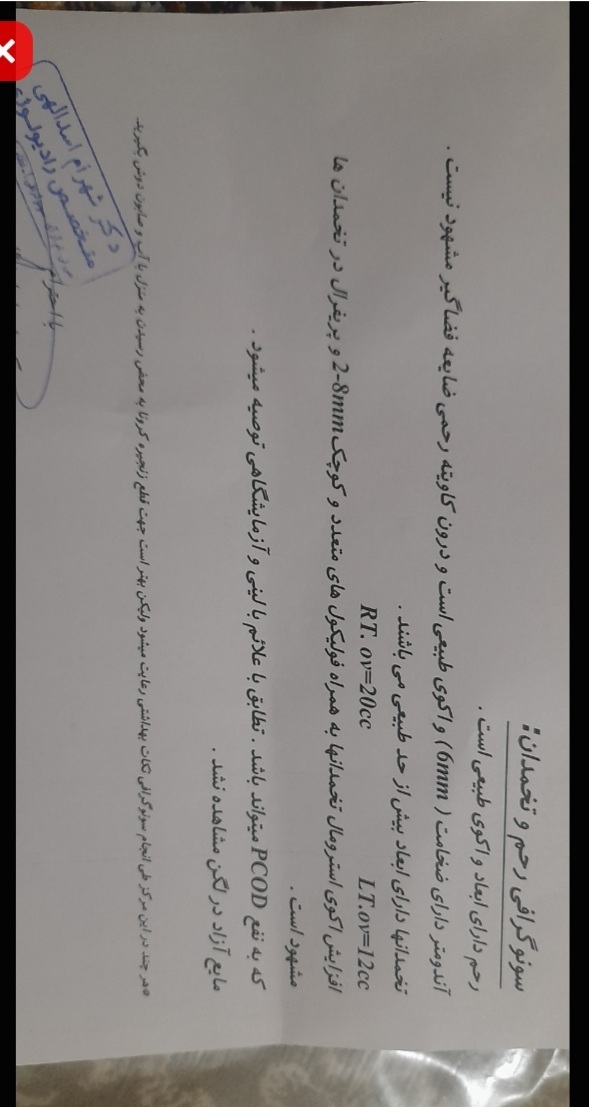 سونوگرافی رحم و تخمدان:
رحم دارای ابعاد و اکوی طبیعی است .
آندومتر دارای ضخامت ( 6mm) و اکوی طبیعی است و درون کاویته رحمی ضایعه فضاگیر مشهود نیست .
تخمدانها دارای ابعاد بیش از حد طبیعی می باشند .
RT. ov=20cc LT.ov=12cc
افزایش اکوی استرومال تخمدانها به همراه فولیکول های متعدد و کوچک 2-8mm و پریفرال در تخمدان ها
مشهود است .
که به نفع PCOD میتواند باشد . تطابق با علائم بالینی و آزمایشگاهی توصیه میشود .
مایع آزاد در لگن مشاهده نشد .
*هر چند در این مرکز طی انجام سونوگرافی نکات بهداشتی رعایت میشود ولیکن بهتر است جهت قطع زنجیره کرونا به محض رسیدن به منزل با آب و صابون دوش بگیرید.
با احترام
دکتر شهرام اسدالهی
متخصص رادیولوژی